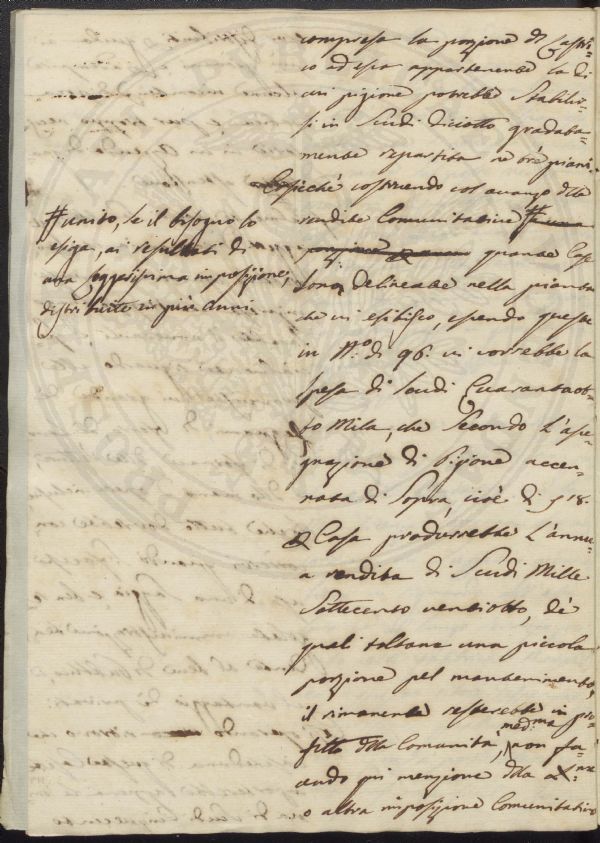 compresa la porzione di Castri-
co ad essa appartenente la di
cui pigione potrebbe stabilir-
si in Scudi diciotto gradata-
mente repartita ne trè piani.
Cosichè costruendo coll'avanzo dtta
rendita Comunitativa #
quante Case
sono delineate nella pianta
che vi esibisco, essendo queste
in N.º di 96. vi vorrebbe la
spesa di Scudi Quarantaot-
to Mila, che Secondo L'asse-
gnazione di Pigione accen-
nata di Sopra, cioè di 18.
Casa produrrebbe L'annu-
a rendita di Scudi Mille
Settecento ventiotto, dè
quali toltane una piccola
porzione pel mantenimento,
il rimanente resterebbe in pro-
fitto dtta Comunità med.ma, non fa-
cendo qui menzione dtta
o altra imposizione Comunitativa
# unito, se il bisogno lo
esiga, ai resultati di
una leggerissima imposizione,
distribuita in più anni